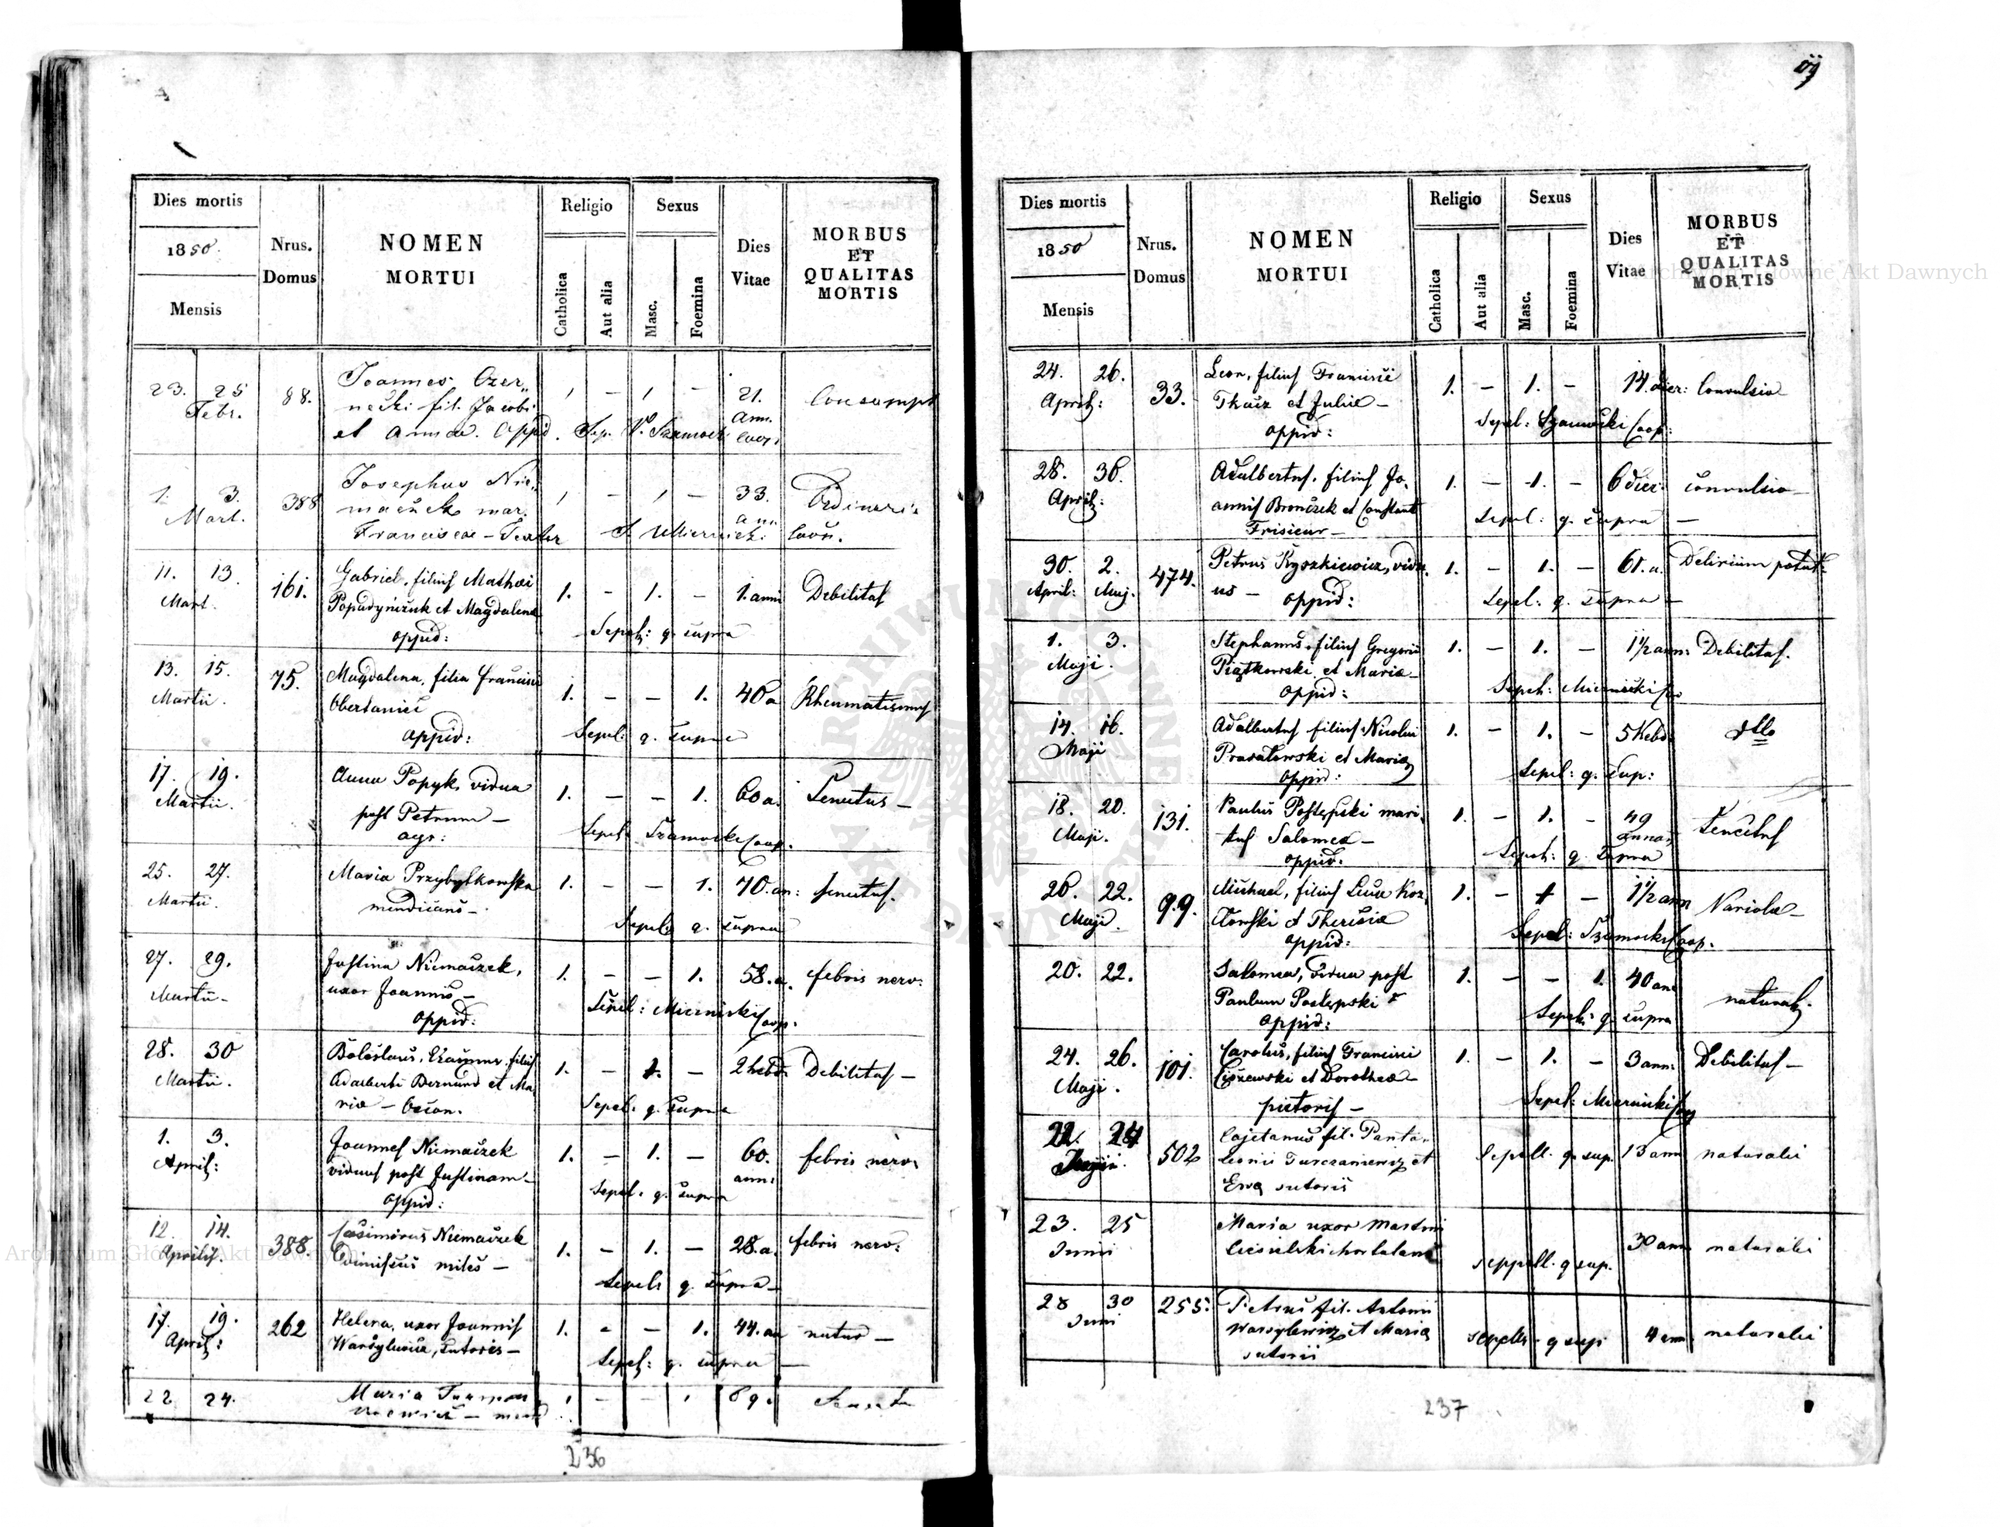 Dies mortis
1850.
Mensis
Nrus.
Domus
NOMEN
MORTUI
Religio
Catholica
Aut alia
Sexus
Masc.
Foemina
Dies
Vitae
MORBUS
ET
QUALITAS
MORTIS
23. 25
Febr.
88.
Joannes Czer„
necki fil. Jacobi
et Annae. Oppid.
1 - 1 -
21.
Ann.
Sep. Szamock
Consumpt
1. 3.
Mart.
388
Josephus Nie„
maczek mar.
Franciscae - Textor
1 - 1 -
33.
ann.
S. Miernicki
Ordinaria
11. 13.
Mart.
161.
Gabriel, filius Mathæi
Popadyniczuk et Magdalena
oppid:
1. - 1. -
1. anni
Debilitas
Sepel: q. supra
13. 15.
Martii.
75.
Magdalena, filia Francisci
Obertaniec
oppid:
1. - - 1.
40 a
Rheumatismus
Sepel. q. supra
17. 19.
Martii.
Anna Popyk, vidua
post Petrum -
agr:
1. - - 1.
60 a.
Senectus -
Sepel: Szamocki Coop.
25. 27.
Martii.
Maria Przybylkowska
mendicans -
1. - - 1.
70. an:
senectus.
Sepel. q. supra
27. 29.
Martii -
Justina Niemaczek,
uxor Joannis -
oppid:
1. - - 1.
58. a.
febris nerv:
Sepel: Miernicki Coop.
28. 30
Martii.
Boleslaus, Erasmus filius
Adalberti Bernard et Ma
ria - Oecon.
1. - 1. -
2 hebd.
Debilitas -
Sepel. q. supra
1. 3.
April:
Joannes Niemaczek
viduus post Justinam -
oppid:
1. - 1. -
60.
anni
febris nerv.
Sepel. q. supra
12. 14.
Aprilis.
388.
Casimirus Niemaczek
Dimissus miles -
1. - 1. -
28. a.
febris nerv:
Sepel: q. supra -
17. 19.
April:
262
Helena, uxor Joannis
Warsylewicz, sutoris -
1. - - 1.
44. an
natur -
Sepel: q. supra -
22 24.
Maria
1 - - 1
89.
236
Dies mortis
1850
Mensis
Nrus.
Domus
NOMEN
MORTUI
Religio
Catholica
Aut alia
Sexus
Masc.
Foemina
Dies
Vitae
MORBUS
ET
QUALITAS
MORTIS
24. 26.
April:
33.
Leon, filius Francisci
Tkacz et Julia -
oppid:
1. - 1. -
14. dier:
Convulsio
Sepel: Szamocki Coop:
28. 30.
April:
Adalbertus, filius Jo„
annis Bronczek et Constant
Frisieur -
1. - 1. -
6 dier:
convulsio -
Sepel: q. supra -
30. 2.
April: Maj.
474.
Petrus Kyszkiewicz, vidu„
us - oppid:
1. - 1. -
61. a.
Delirium potat.
Sepel: q. supra -
1. 3.
Maji.
Stephanus, filius Gregorii
Piątkowski, et Maria -
oppid:
1. - 1. -
1 1/2 ann:
Debilitas.
Sepel: Miernicki Coo
14. 16.
Maji
Adalbertus filius Nicolai
Prasalowski et Maria
oppid:
1. - 1. -
5 hebd.
dtto
Sepel: q. sup:
18. 20.
Maji.
131.
Paulus Postępski mari„
tus Salomea -
oppid:
1. - 1. -
49
annor
Senectus
Sepel: q. supra
20. 22.
Maji.
99.
Michael, filius Luca Koz„
lowski et Theresia
oppid:
1. - 1 -
1 1/2 ann
Variola -
Sepel: Szamocki Coop.
20. 22.
Salomea, vidua post
Paulum Postępski
oppid:
1. - - 1.
40 ann
natural.
Sepel: q. supra
24. 26.
Maji.
101.
Carolus, filius Francisci
Ciszewski et Dorothea -
pictoris -
1. - 1. -
3 ann:
Debilitas -
Sepel: Miernicki Coop
22. 24
Junii.
502
Cajetanus fil. Panta„
leonis Turczaniewicz et
Ewa sutoris
Sepell. q. sup.
13 ann
naturalis
23. 25
Junii
Maria uxor Martini
Ciesielski hortulani
seppell. q sup.
30 ann
naturalis
28 30
Juni
255.
Petrus fil. Antonii
Warsylewicz et Maria
sutorii
sepells. q sup
4 ann
naturalis
237
Archiwum Główne Akt Dawnych
Archiwum Główne Akt Dawnych
ARCHIWUM GŁÓWNE AKT DAWNYCH